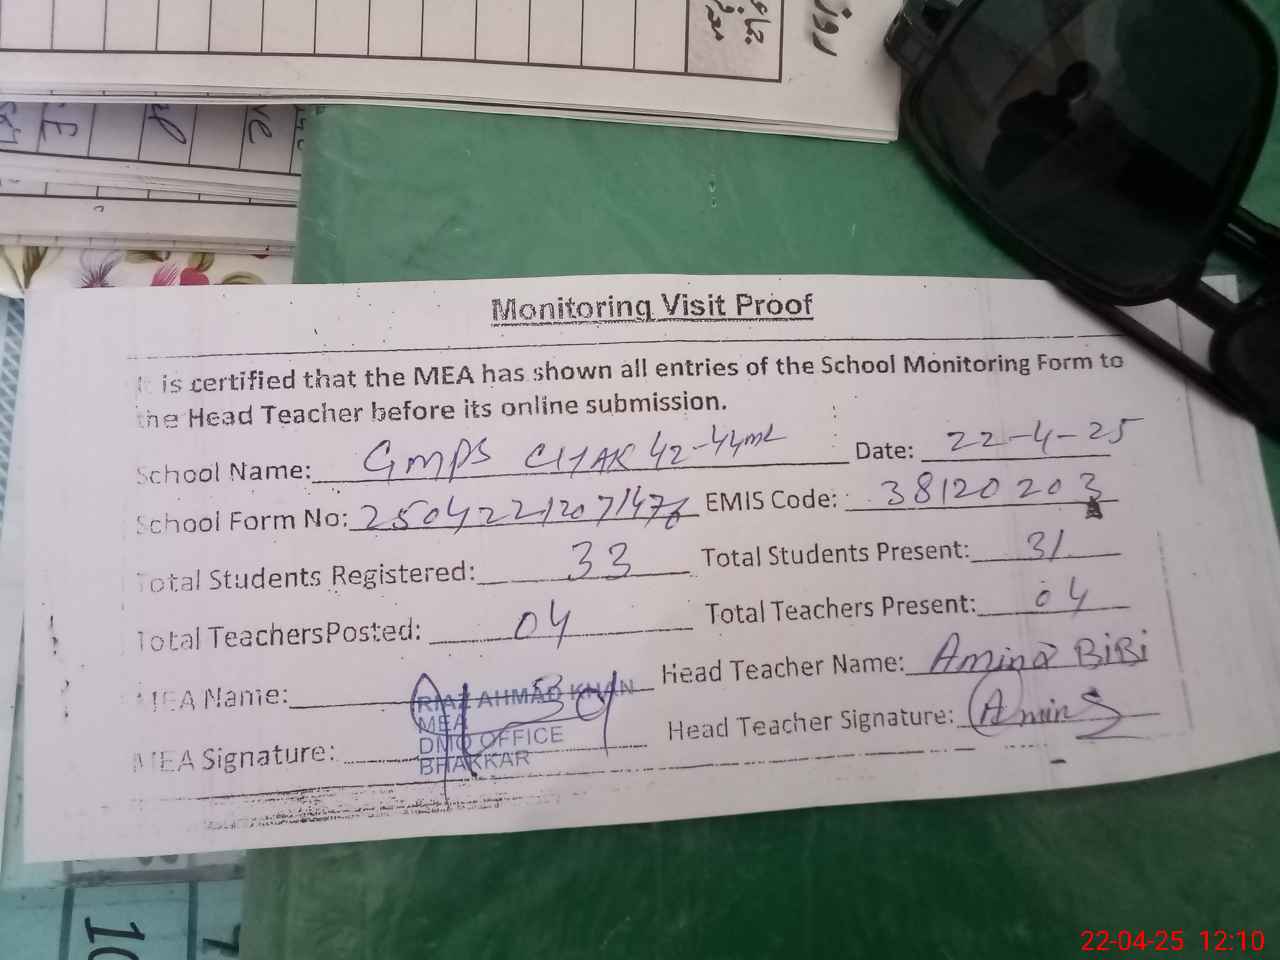 Monitoring Visit Proof
It is certified that the MEA has shown all entries of the School Monitoring Form to
the Head Teacher before its online submission.
School Name: GMPS CHAK 42-44ML Date: 22-4-25
School Form No: 25042212071476 EMIS Code: 38120203
Total Students Registered: 33 Total Students Present: 31
Total TeachersPosted: 04 Total Teachers Present: 04
MEA Name: Head Teacher Name: Amina BiBi
RIAZ AHMAD KHAN
MEA
DMO OFFICE
BHAKKAR
MEA Signature: Head Teacher Signature: Amina
22-04-25 12:10